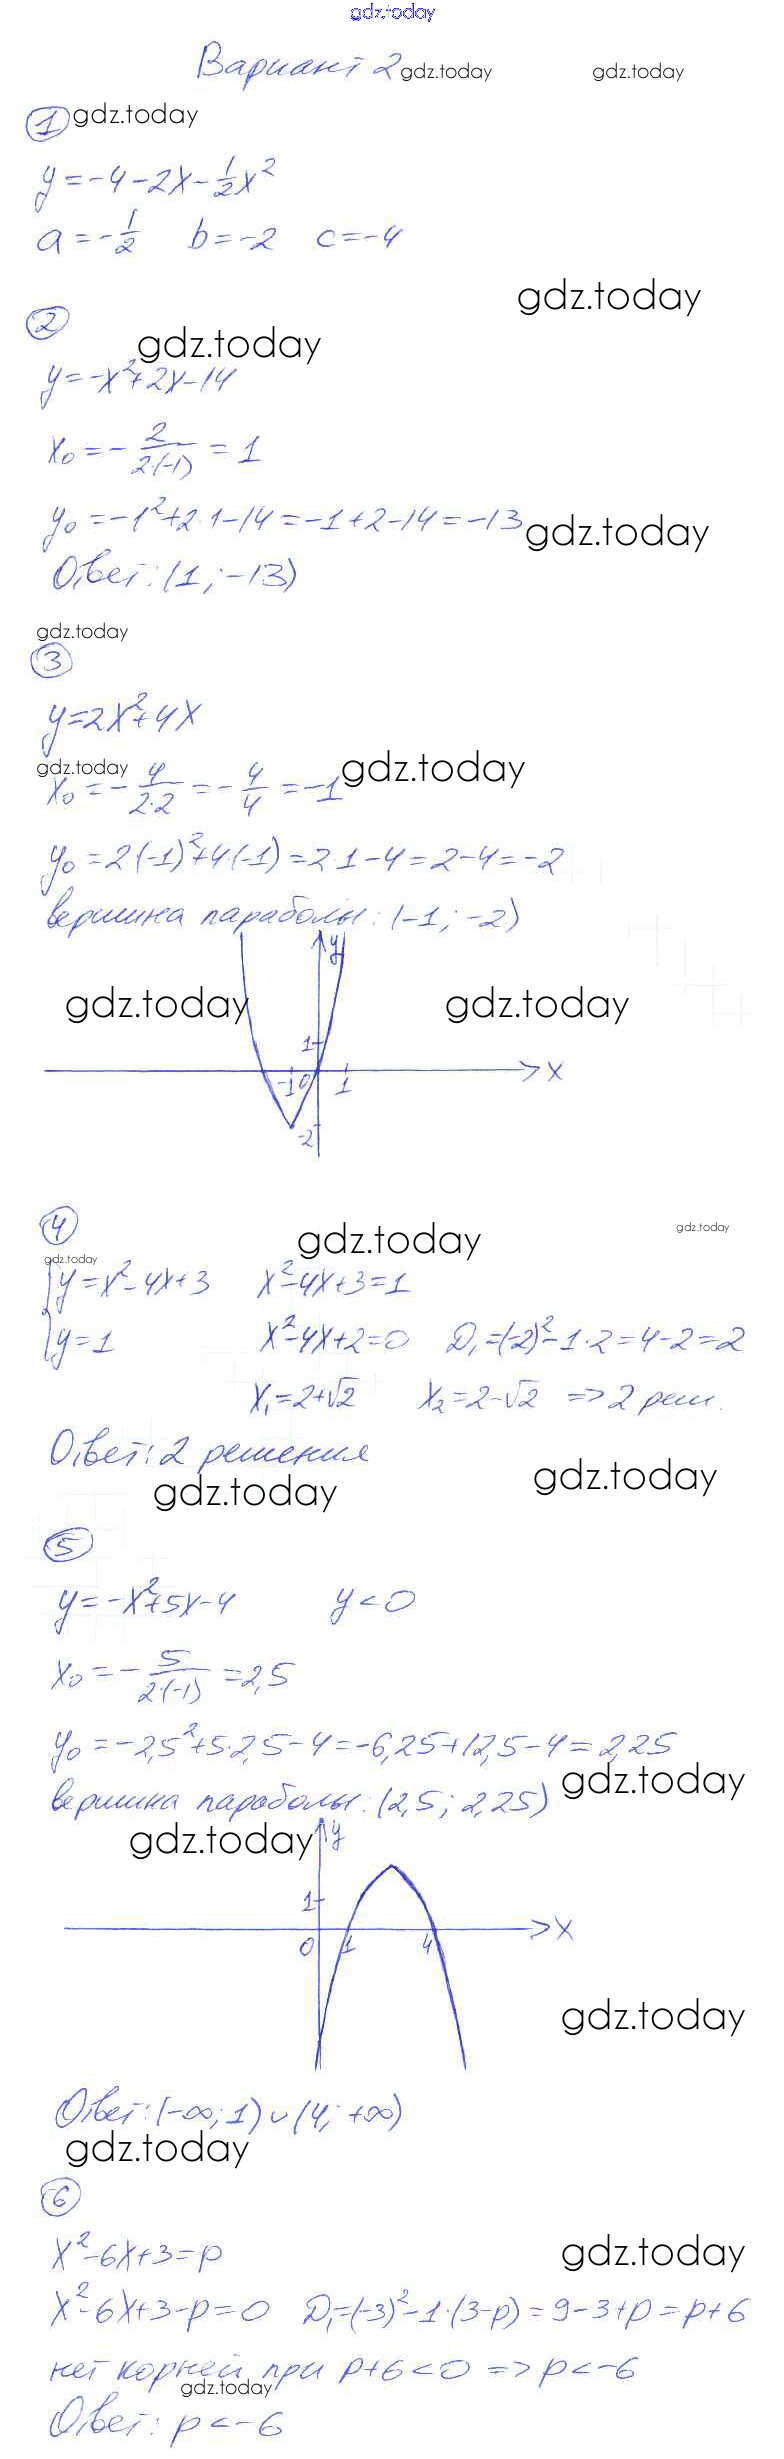 gdz.today
Вариант 2 gdz.today gdz.today
1 gdz.today
y = -4 - 2x - 1/2 x²
a = -1/2 b = -2 c = -4
gdz.today
2
gdz.today
y = -x² + 2x - 14
x₀ = - 2/(2·(-1)) = 1
y₀ = -1² + 2·1 - 14 = -1 + 2 - 14 = -13 gdz.today
Ответ: (1; -13)
gdz.today
3
y = 2x² + 4x
gdz.today gdz.today
x₀ = - 4/(2·2) = - 4/4 = -1
y₀ = 2·(-1)² + 4·(-1) = 2·1 - 4 = 2 - 4 = -2
вершина параболы: (-1; -2)
y
gdz.today gdz.today
1
-1 0 1 x
-2
4
gdz.today gdz.today
gdz.today
y = x² - 4x + 3 x² - 4x + 3 = 1
y = 1 x² - 4x + 2 = 0 D₁ = (-2)² - 1·2 = 4 - 2 = 2
x₁ = 2 + √2 x₂ = 2 - √2 => 2 реш.
Ответ: 2 решения
gdz.today gdz.today
5
y = -x² + 5x - 4 y < 0
x₀ = - 5/(2·(-1)) = 2,5
y₀ = -2,5² + 5·2,5 - 4 = -6,25 + 12,5 - 4 = 2,25
gdz.today
вершина параболы: (2,5; 2,25)
gdz.today y
1
x
0 1 4
gdz.today
Ответ: (-∞; 1) ∪ (4; +∞)
gdz.today
6
x² - 6x + 3 = p gdz.today
x² - 6x + 3 - p = 0 D₁ = (-3)² - 1·(3-p) = 9 - 3 + p = p + 6
нет корней при p + 6 < 0 => p < -6
gdz.today
Ответ: p < -6